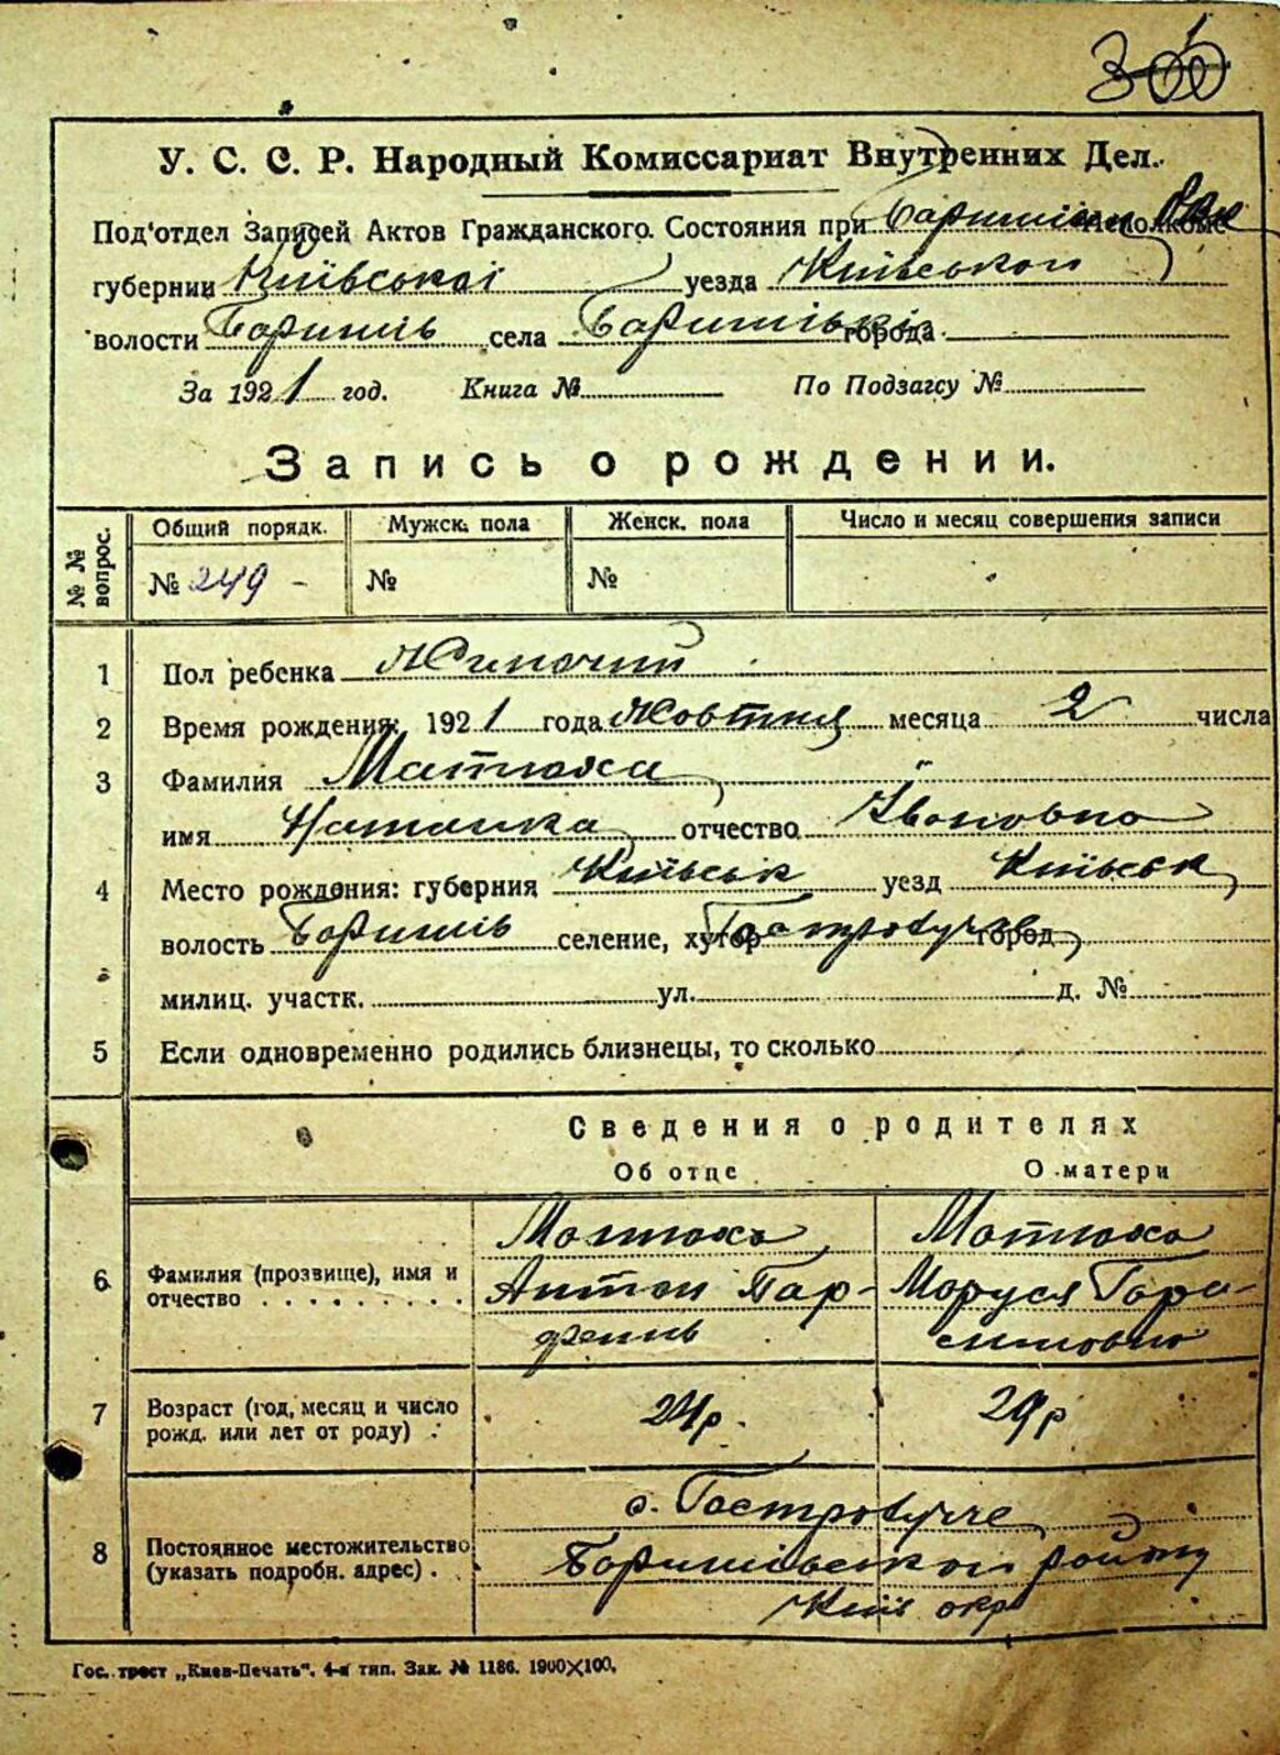 300
У. С. С. Р. Народный Комиссариат Внутренних Дел.
Под'отдел Записей Актов Гражданского Состояния при
губернии Київської уезда Київського
волости Баришів села Баришівки города
За 1921 год. Книга № По Подзагсу №
Запись о рождении.
№ № вопрос. Общий порядк. Мужск. пола Женск. пола Число и месяц совершения записи
№ 249 - № №
1 Пол ребенка Жиночий
2 Время рождения: 1921 года Жовтня месяца 2 числа
3 Фамилия Матюха
имя Наталка отчество Івановна
4 Место рождения: губерния Київськ уезд Київськ
волость Баришів селение, хутор Гостролуччє город
милиц. участк. ул. д. №
5 Если одновременно родились близнецы, то сколько
Сведения о родителях
Об отце О матери
Матюха Матюха
6 Фамилия (прозвище), имя и отчество Антон Пар- Маруся Гара-
фенів симовна
7 Возраст (год, месяц и число рожд. или лет от роду) 24р. 29р
с. Гостролуччє
8 Постоянное местожительство (указать подробн. адрес) Баришівського району
Київ окр
Гос. трест „Киев-Печать". 4-я тип. Зак. № 1186. 1900×100.